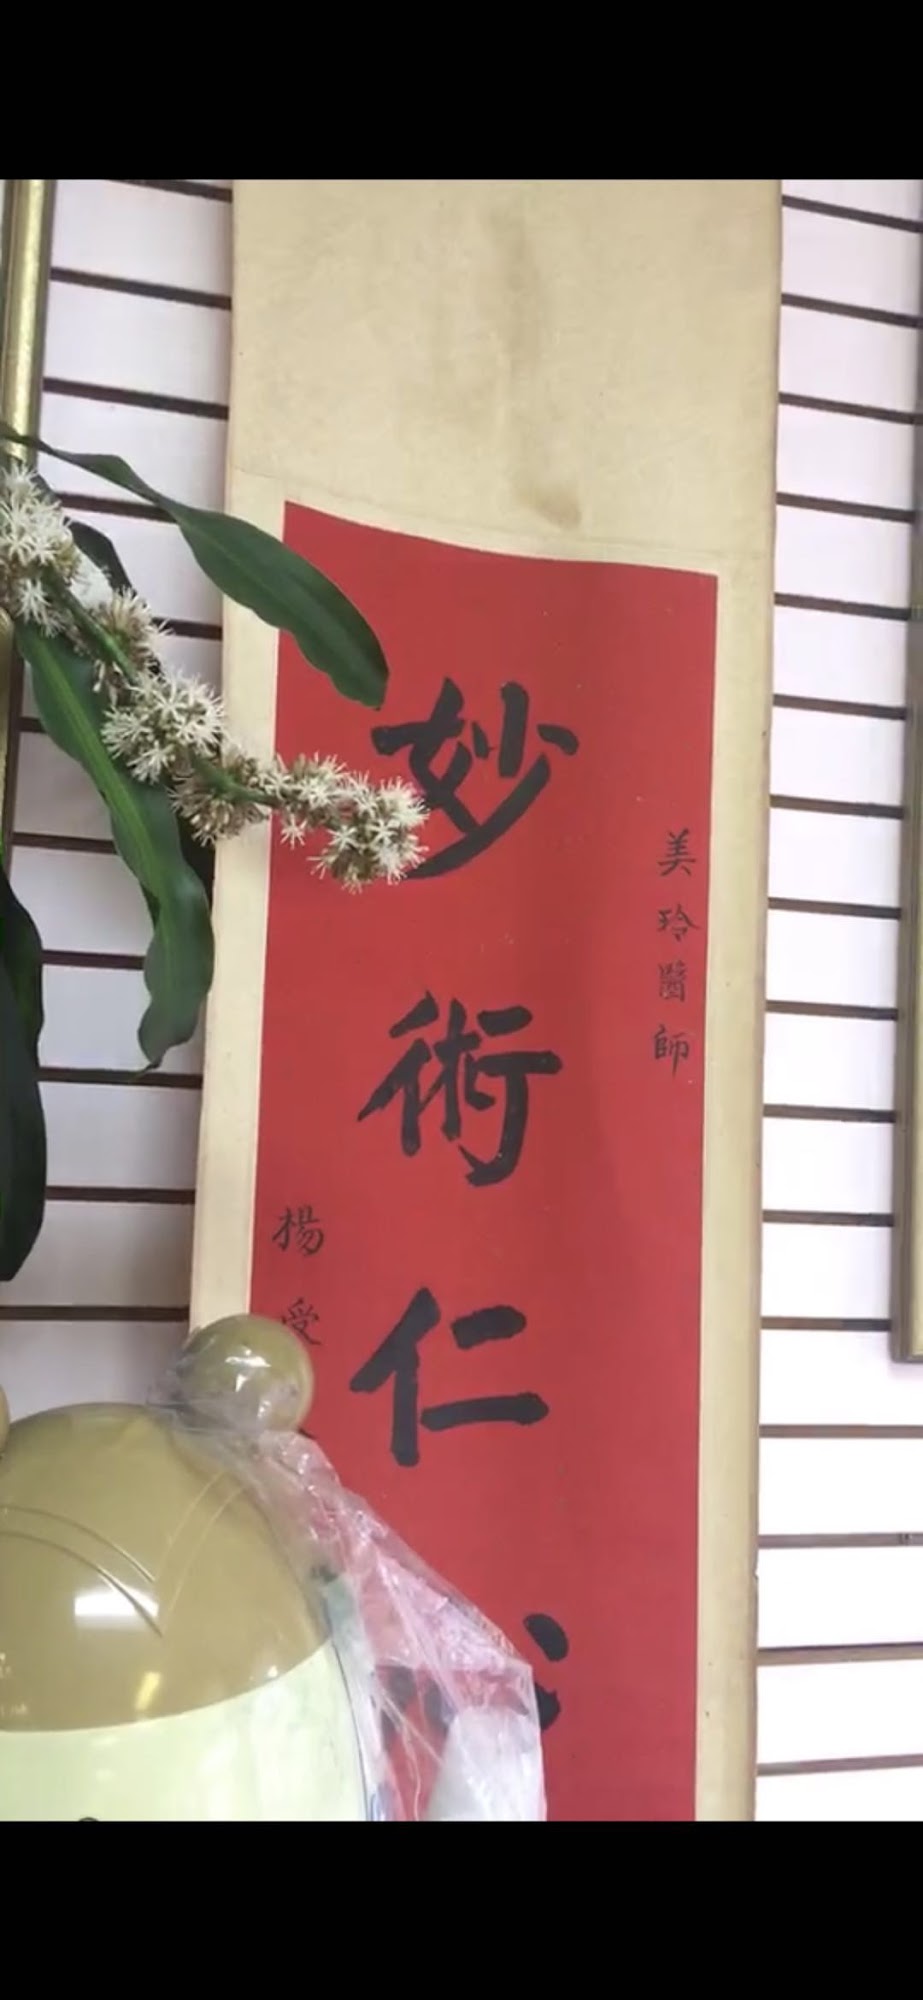 美玲醫師
妙術仁
楊受